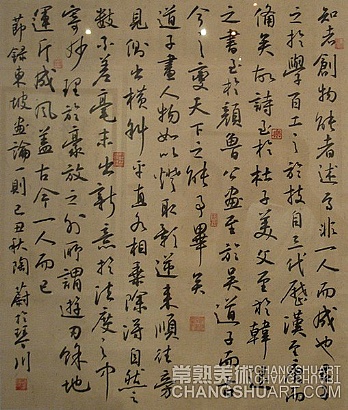 知者創物能者述焉非一人而成也君子
之於學百工之於技自三代歷漢至唐而
備矣故詩至於杜子美文至於韓退
之書至於顏魯公畫至於吳道子而古
今之變天下之能事畢矣
道子畫人物如以燈取影逆來順往旁
見側出橫斜平直各相乘除得自然之
數不差毫末出新意於法度之中
寄妙理於豪放之外所謂遊刃餘地
運斤成風蓋古今一人而已
節錄東坡畫論一則己丑秋陶蔚於琴川
常熟美術 CHANGSHUART
CHANGSHUART.COM